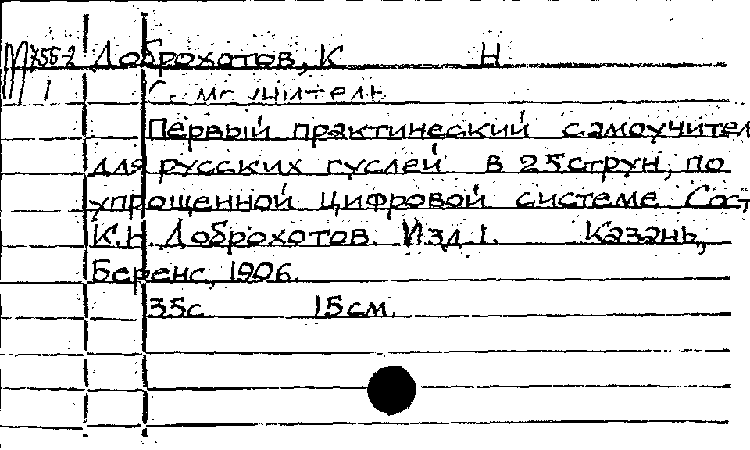 Доброхотов, К Н
1 Самоучитель
Первый практический самоучител
для русских гуслей в 25 струн, по
упрощенной цифровой системе Сост
К.Н. Доброхотов. Изд. 1. Казань,
Беренс, 1906.
35с 15см.